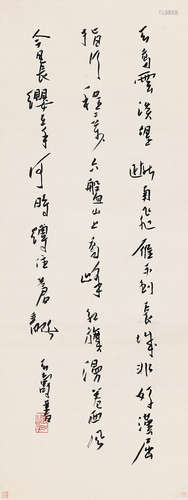 天高雲淡望斷南飛雁不到長城非好漢屈
指行程二萬六盤山上高峰紅旗漫卷西風
今日長纓在手何時縛住蒼龍